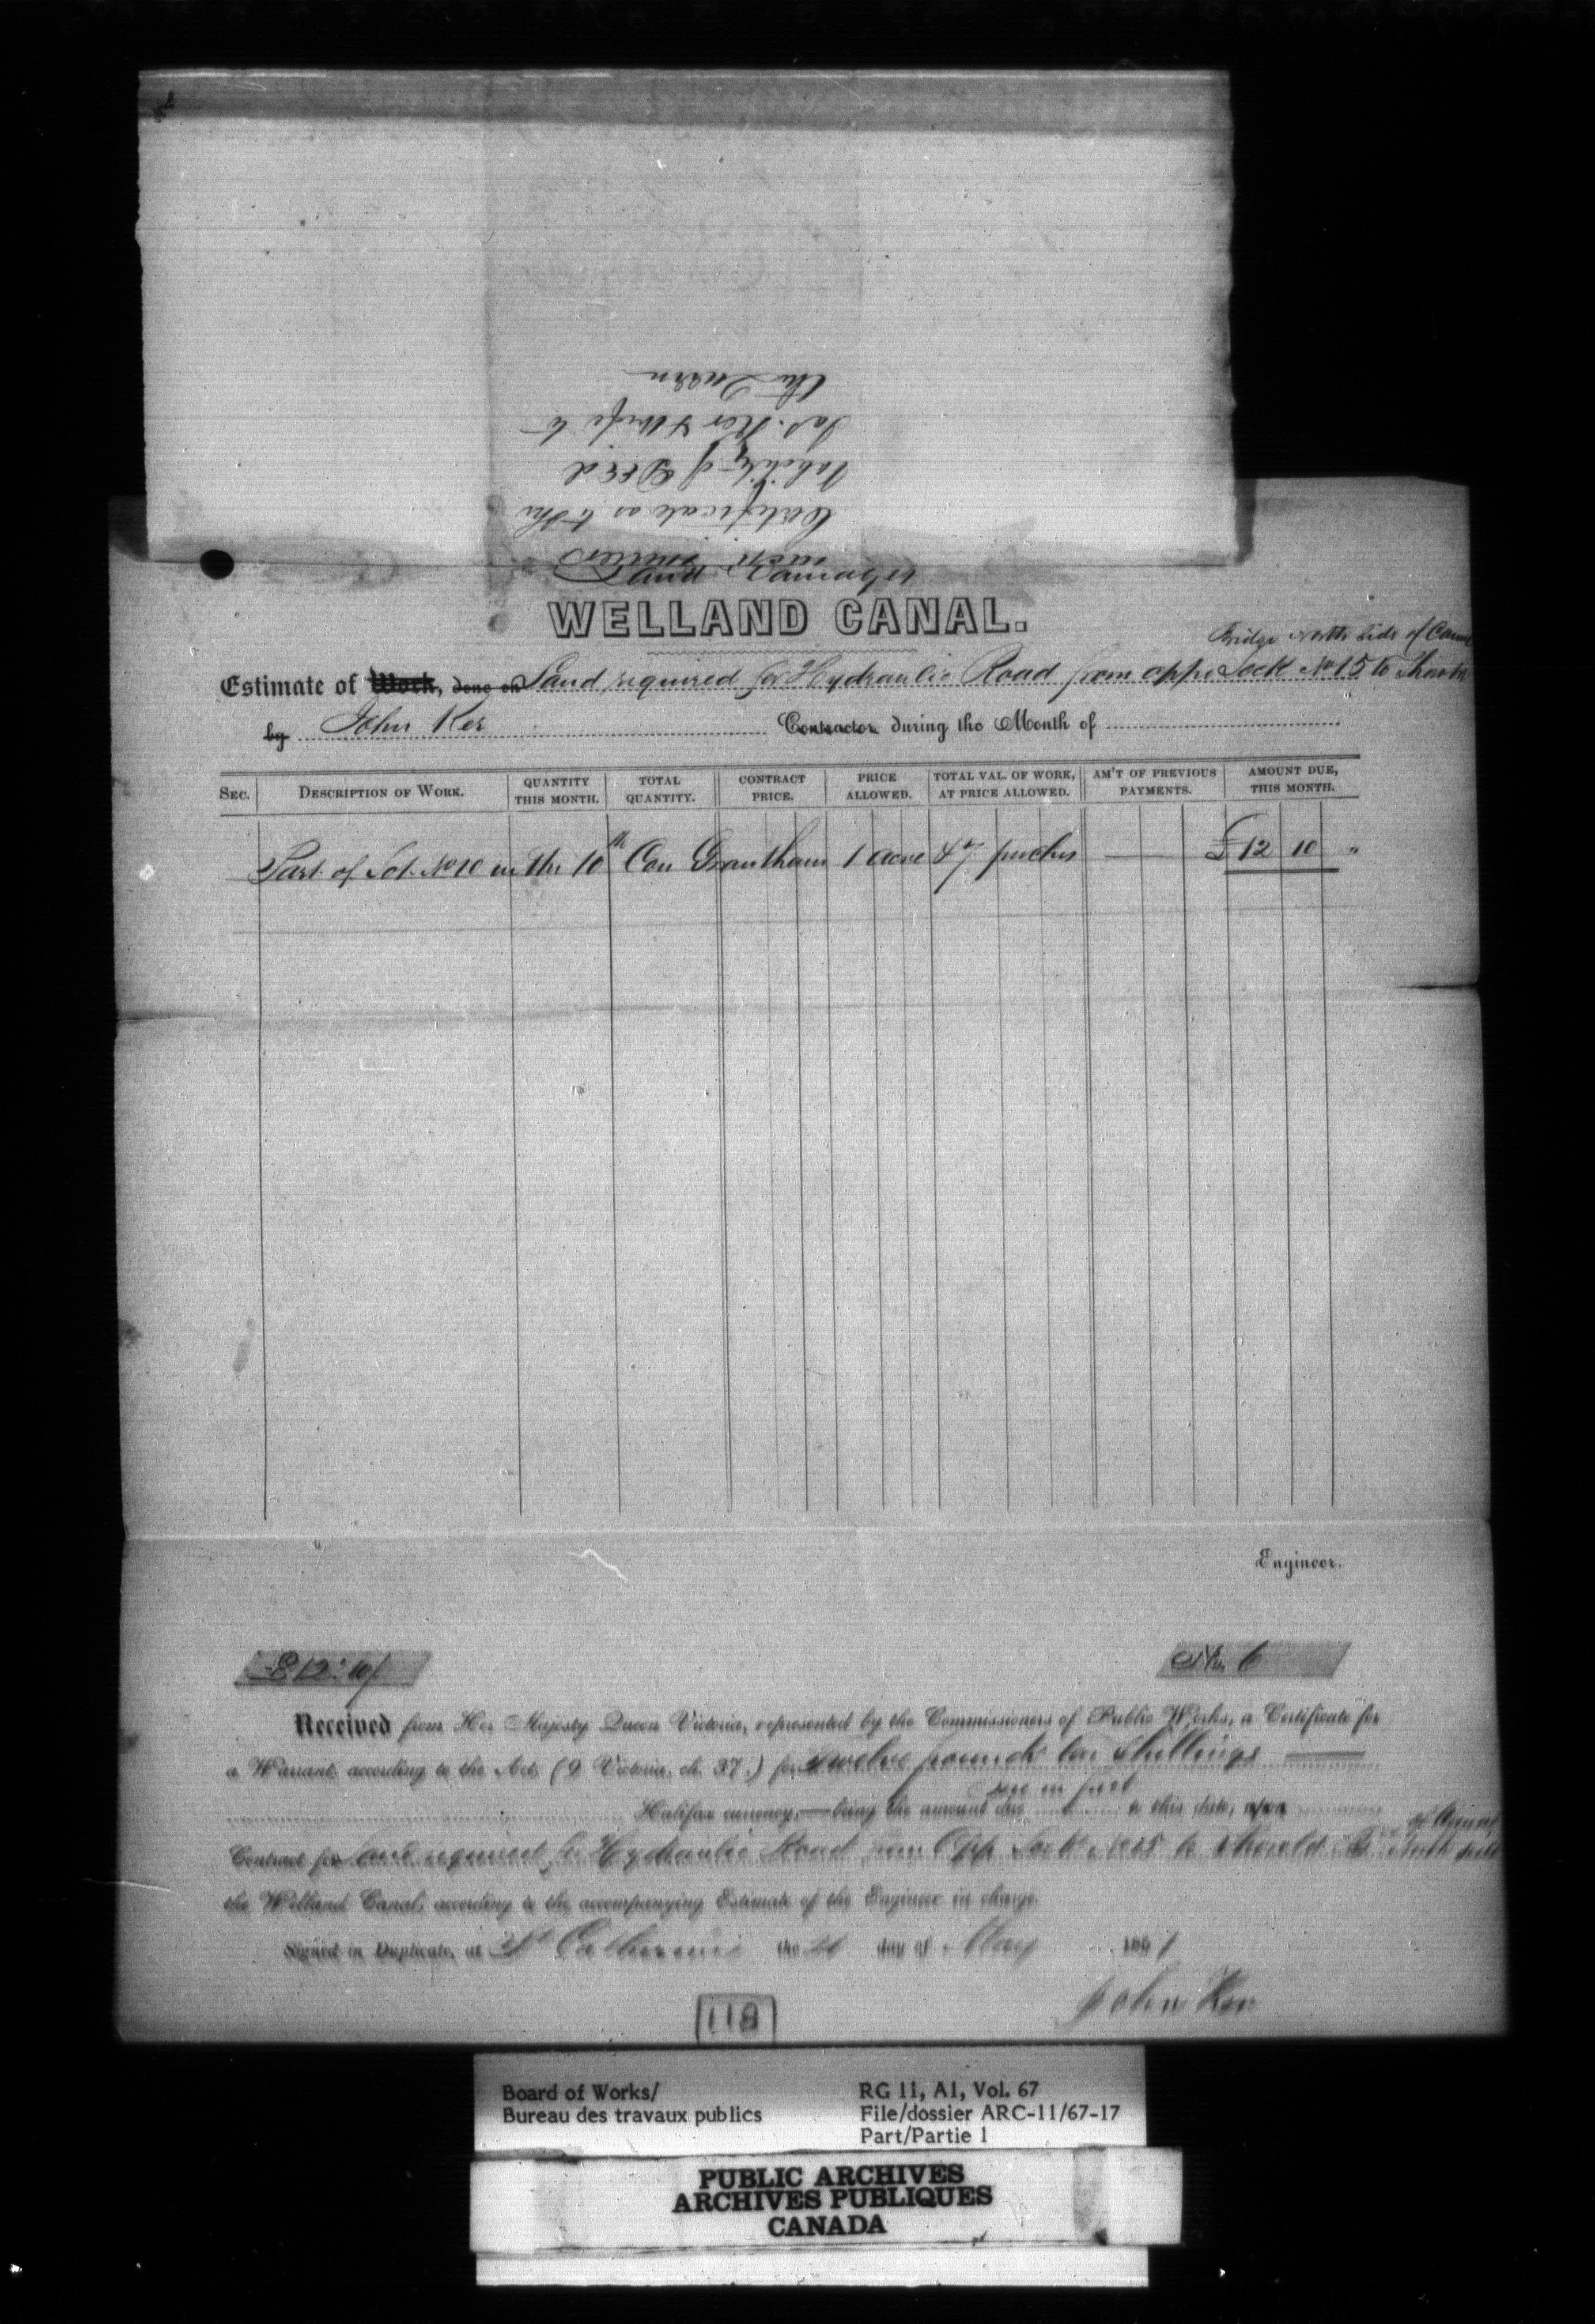 the Queen
Jas. Ker & Wife to
Validity of Deed
Certificate as to the
Land Damages
WELLAND CANAL.
Bridge north side of Canal
Estimate of Work, done on Land required for Hydraulic Road from oppe. Lock No 15 to
by John Ker Contractor during the Month of
SEC. DESCRIPTION OF WORK. QUANTITY THIS MONTH. TOTAL QUANTITY. CONTRACT PRICE. PRICE ALLOWED. TOTAL VAL. OF WORK, AT PRICE ALLOWED. AM'T OF PREVIOUS PAYMENTS. AMOUNT DUE, THIS MONTH.
Part of Lot No 10 in the 10th Con Grantham 1 acre 47 perches — £12 10 "
Engineer.
£12:10/ No. 6
Received from Her Majesty Queen Victoria, represented by the Commissioners of Public Works, a Certificate for
a Warrant according to the Act, (9 Victoria, ch. 37.) for Twelve pounds ten Shillings
Halifax currency,—being the amount due me in full to this date, upon
Contract for Land required for Hydraulic Road from Opp Lock No 15 to Thorold North side
the Welland Canal, according to the accompanying Estimate of the Engineer in charge.
Signed in Duplicate, at St Catherines the 21 day of May 1851
John Ker
118
Board of Works/ RG 11, A1, Vol. 67
Bureau des travaux publics File/dossier ARC-11/67-17
Part/Partie 1
PUBLIC ARCHIVES
ARCHIVES PUBLIQUES
CANADA